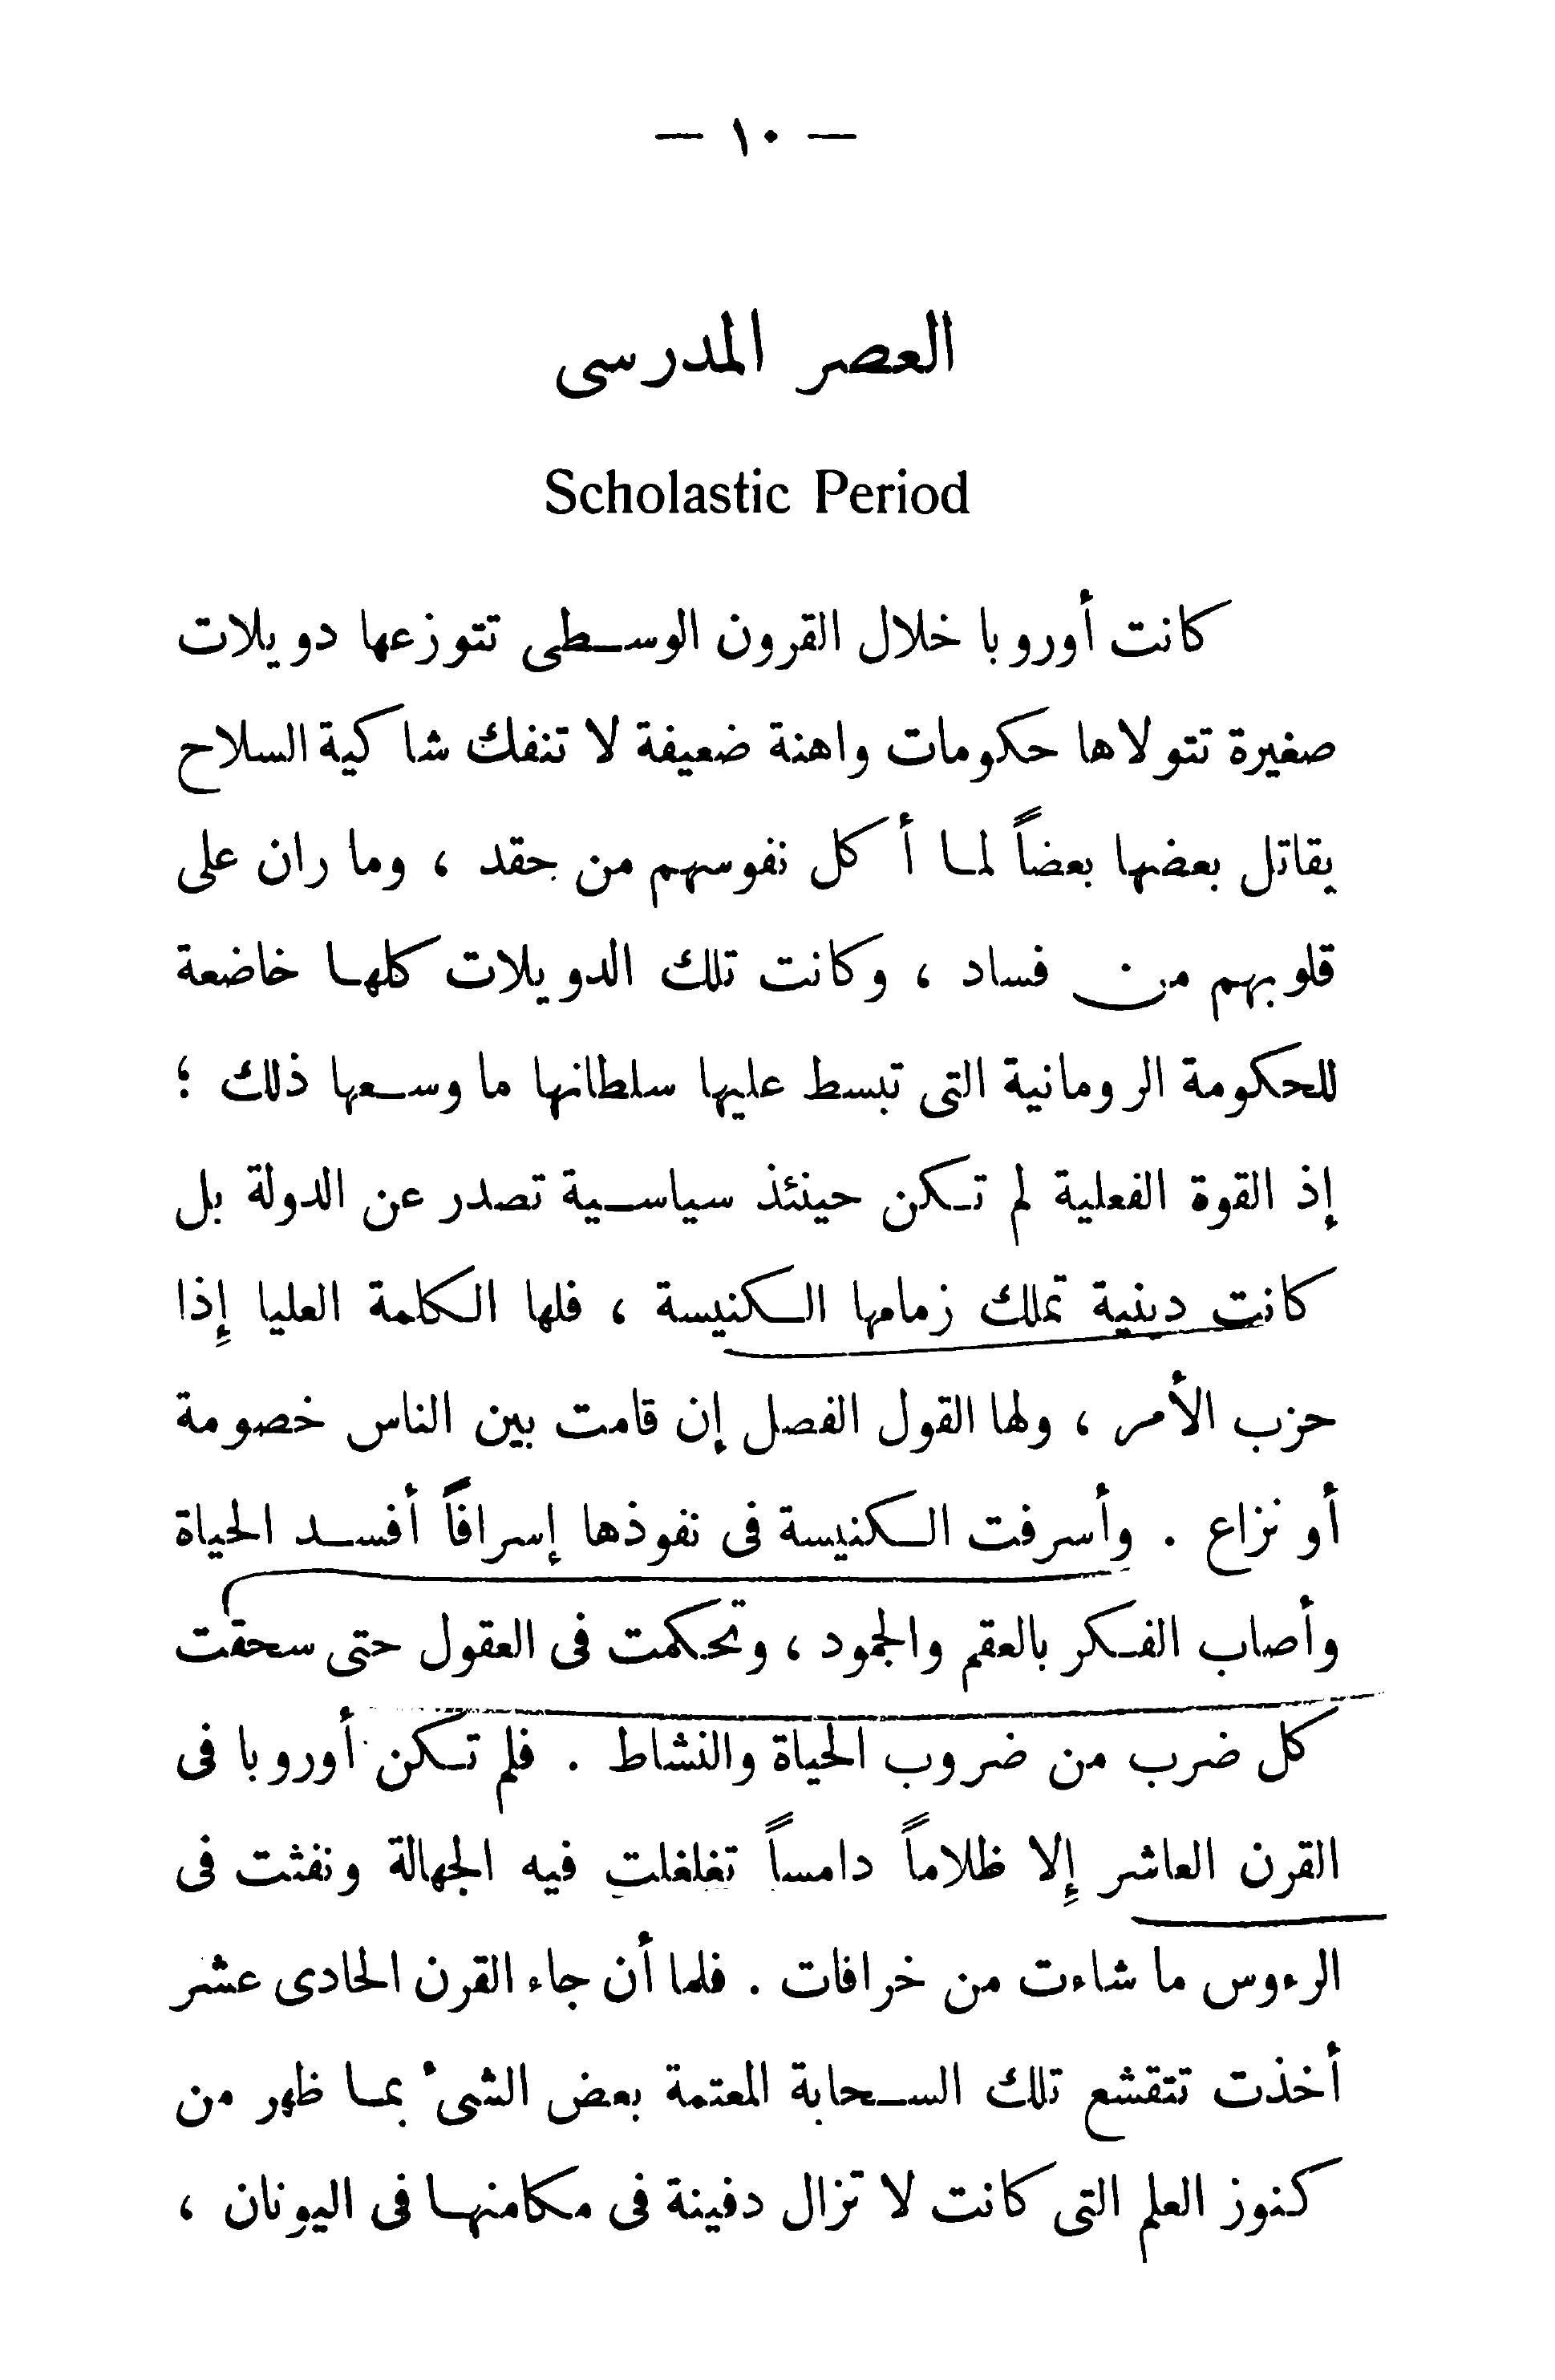 — ١٠ —
العصر المدرسى
Scholastic Period
كانت أوروبا خلال القرون الوسطى تتوزعها دويلات
صغيرة تتولاها حكومات واهنة ضعيفة لا تنفك شاكية السلاح
يقاتل بعضها بعضاً لما أكل نفوسهم من حقد ، وما ران على
قلوبهم من فساد ، وكانت تلك الدويلات كلها خاضعة
للحكومة الرومانية التى تبسط عليها سلطانها ما وسعها ذلك ؛
إذ القوة الفعلية لم تكن حينئذ سياسية تصدر عن الدولة بل
كانت دينية تملك زمامها الكنيسة ، فلها الكلمة العليا إذا
حزب الأمر ، ولها القول الفصل إن قامت بين الناس خصومة
أو نزاع . وأسرفت الكنيسة فى نفوذها إسرافاً أفسد الحياة
وأصاب الفكر بالعقم والجمود ، وتحكمت فى العقول حتى سحقت
كل ضرب من ضروب الحياة والنشاط . فلم تكن أوروبا فى
القرن العاشر إلا ظلاماً دامساً تغلغلت فيه الجهالة ونفثت فى
الرءوس ما شاءت من خرافات . فلما أن جاء القرن الحادى عشر
أخذت تتقشع تلك السحابة المعتمة بعض الشىء بما ظهر من
كنوز العلم التى كانت لا تزال دفينة فى مكامنها فى اليونان ،